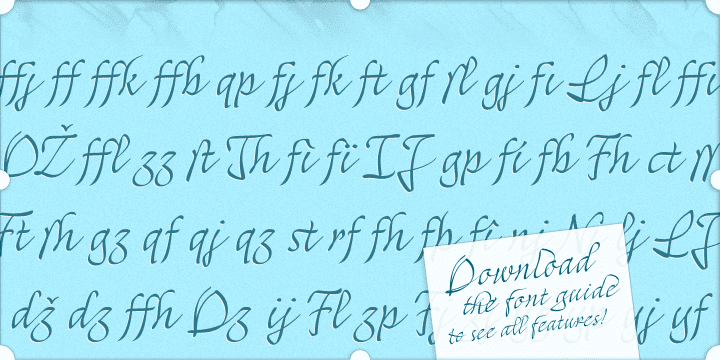 ffj ff ffk ffb qp fj fk ft gf ſl gj fi Lj fl ffi
DŽ ffl zz ſt Th fì fï IJ gp fí fb Fh ct
Ft ſh gz qf qj qz st rf fh fb fî nj lj LJ
dž dz ffh Dz ij Fl zp yj yf
Download
the font guide
to see all features!